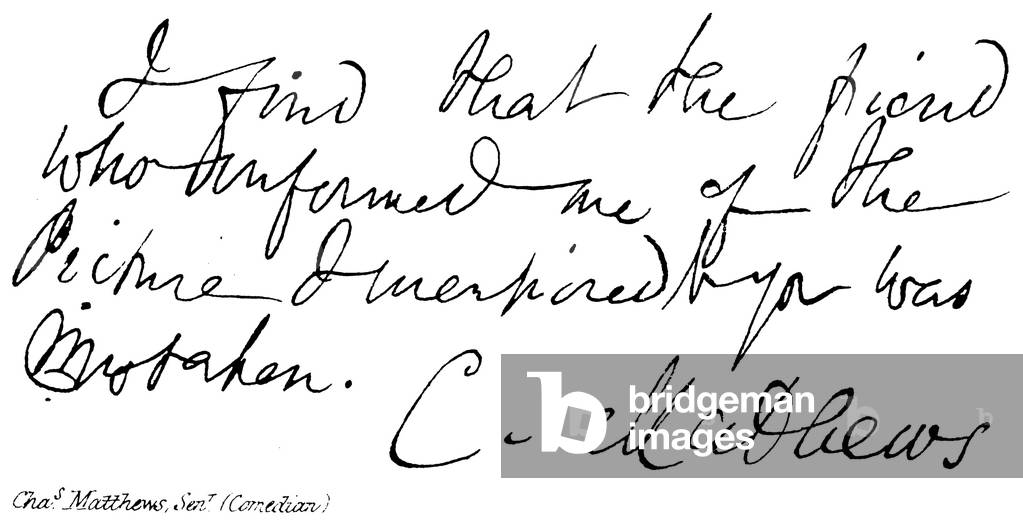 I find that the friend
who informed me of the
Picture I mentioned to you was
Mistaken.
C Mathews
bridgeman
images
Cha.s Matthews, Sen.r (Comedian)